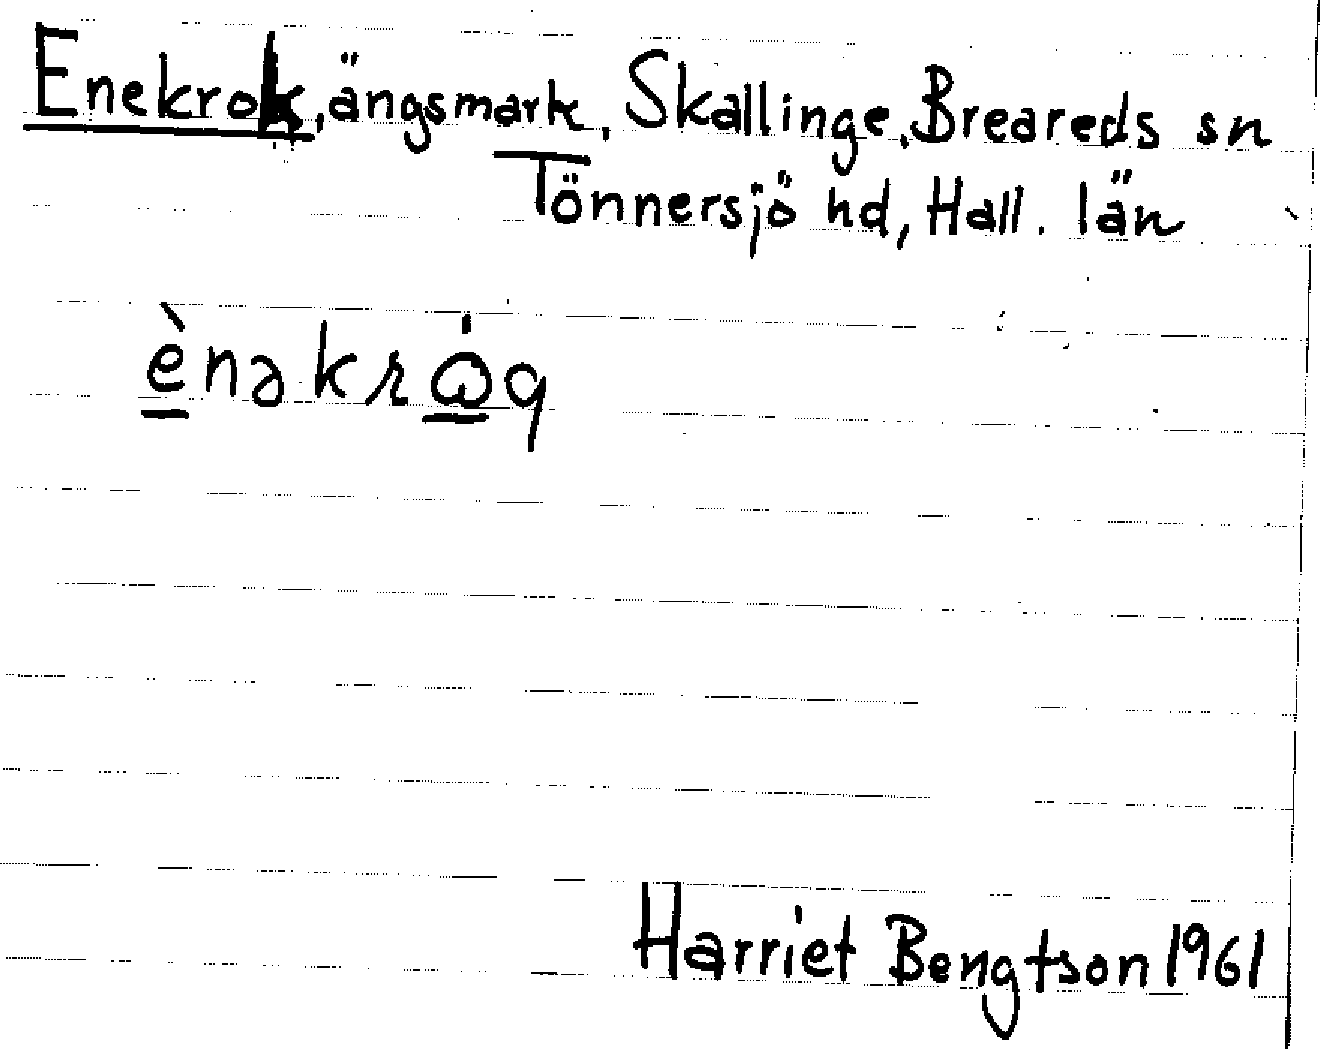 Enekrok, ängsmark, Skallinge, Breareds sn
Tönnersjö hd, Hall. län
ènəkrɷ́q
Harriet Bengtson 1961